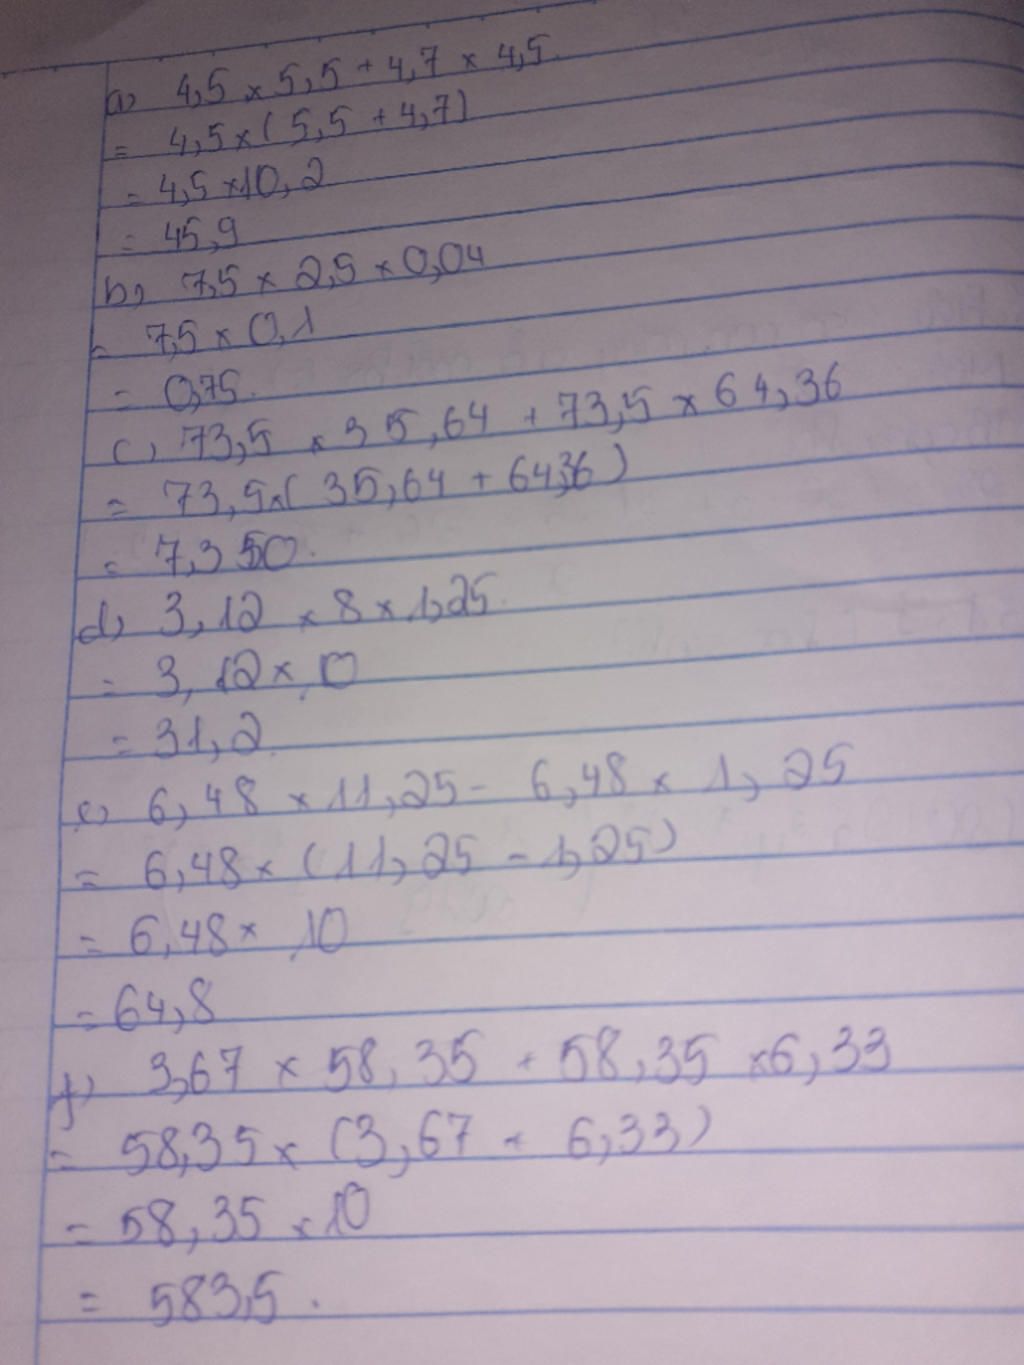 a, 4,5 × 5,5 + 4,7 × 4,5.
= 4,5 × (5,5 + 4,7)
= 4,5 × 10,2
= 45,9
b, 7,5 × 2,5 × 0,04
= 7,5 × 0,1
= 0,75.
c, 73,5 × 35,64 + 73,5 × 64,36
= 73,5 × (35,64 + 64,36)
= 7350.
d, 3,12 × 8 × 1,25.
= 3,12 × 10
= 31,2.
e, 6,48 × 11,25 - 6,48 × 1,25
= 6,48 × (11,25 - 1,25)
= 6,48 × 10
= 64,8
f, 3,67 × 58,35 + 58,35 × 6,33
= 58,35 × (3,67 + 6,33)
= 58,35 × 10
= 583,5.